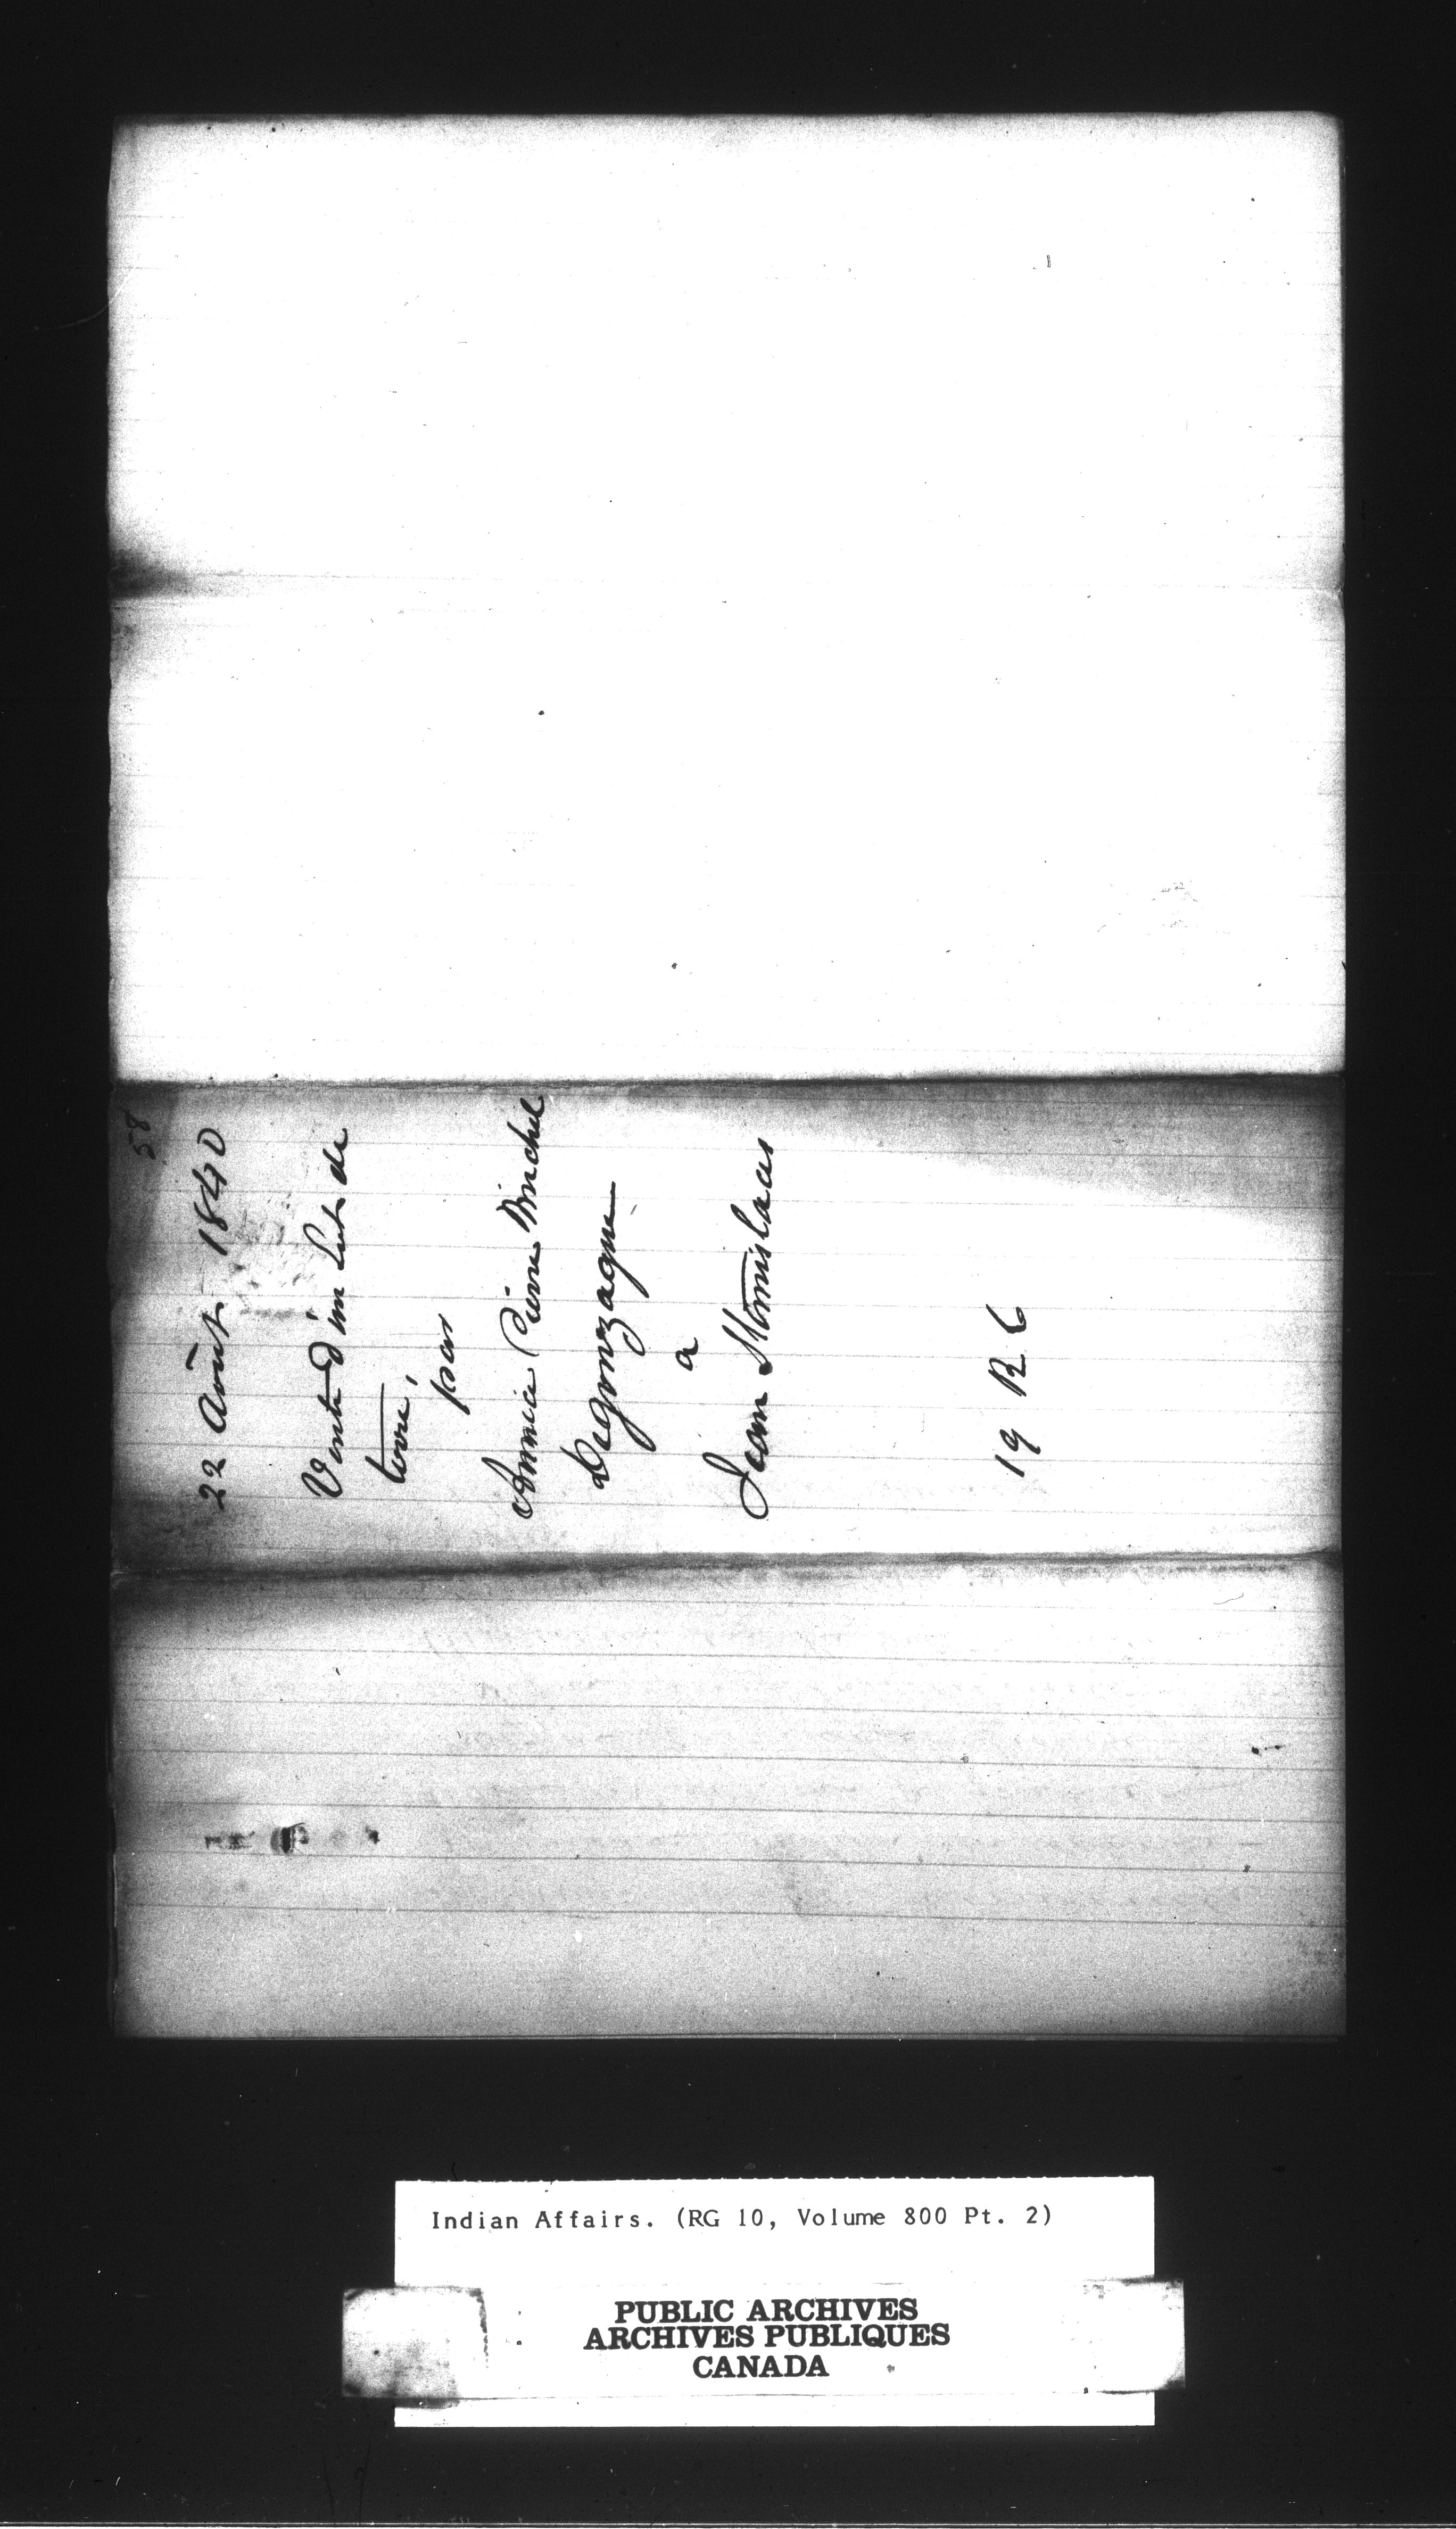 58
22 Août 1840
Vente d'un Lot de
terre,
par
Annie Pierre Michel
Degonzague
a
Jean Stanislaus
19 R C
Indian Affairs. (RG 10, Volume 800 Pt. 2)
PUBLIC ARCHIVES
ARCHIVES PUBLIQUES
CANADA